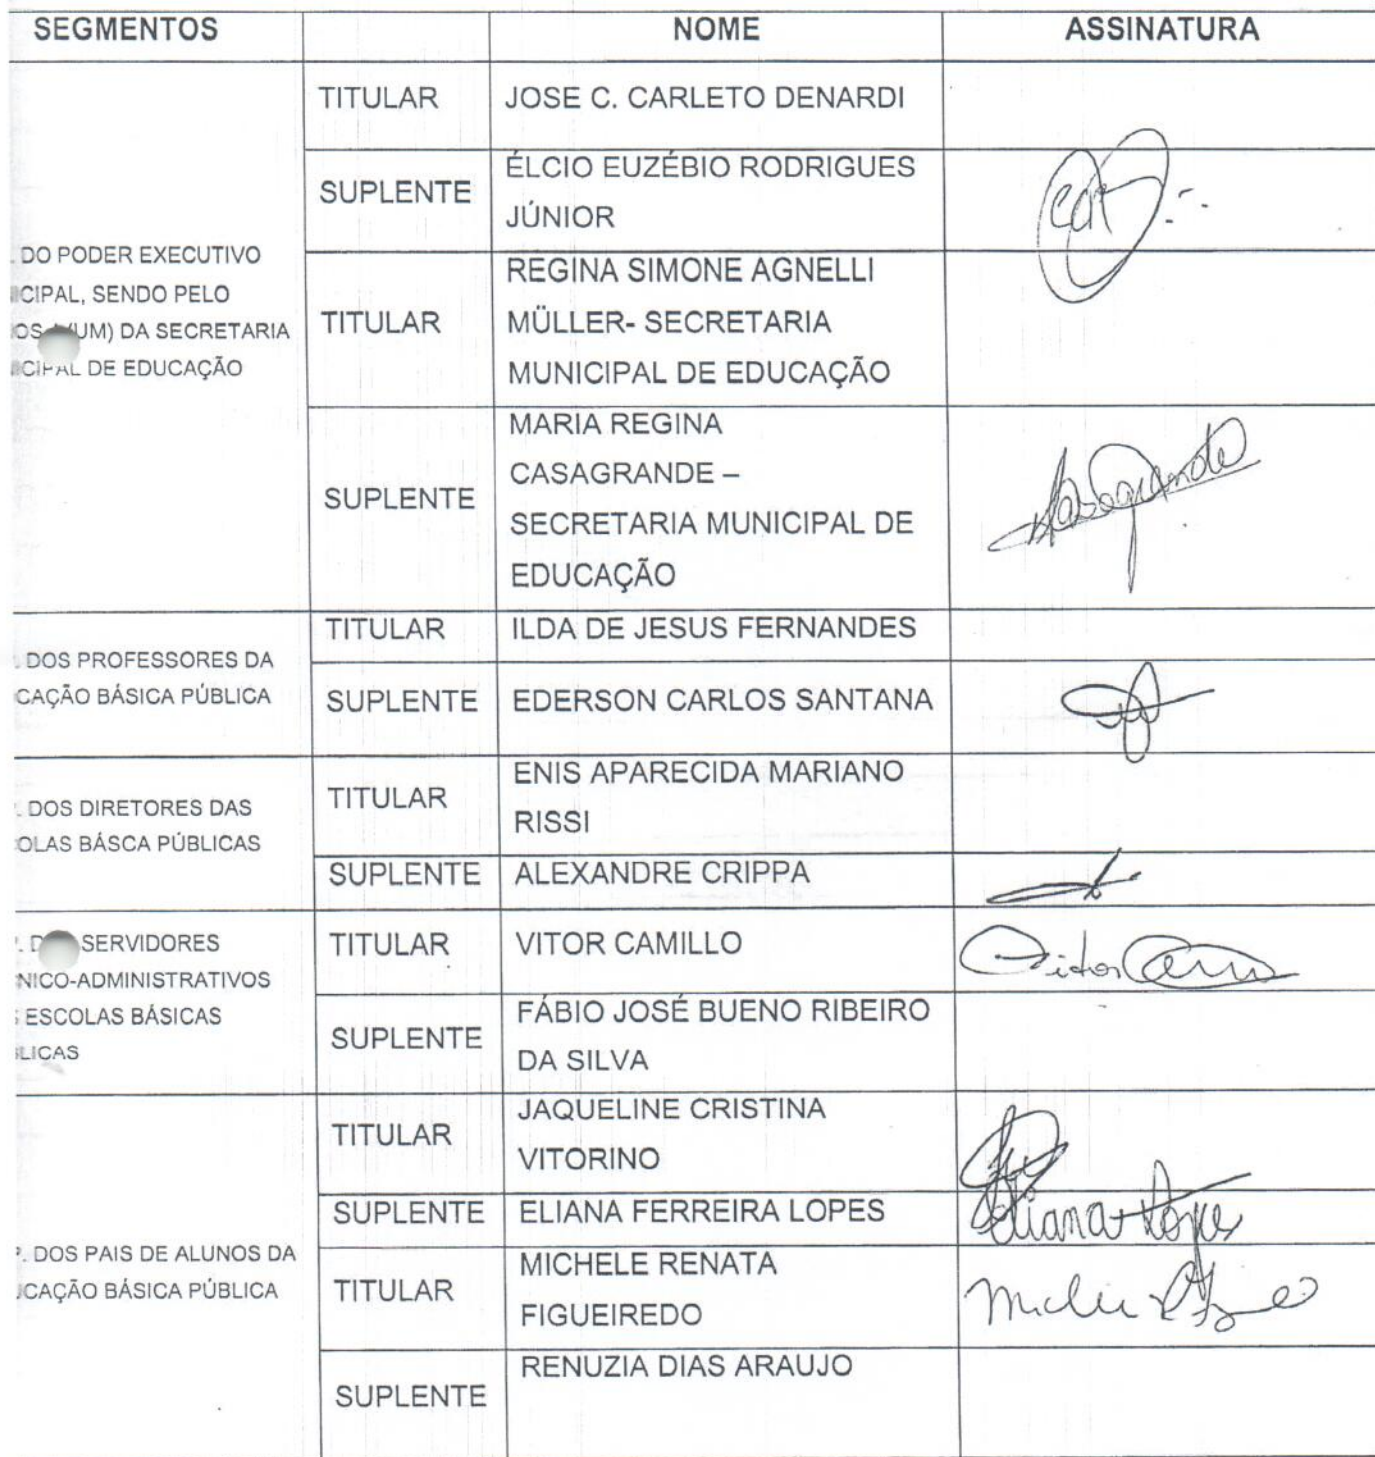 SEGMENTOS NOME ASSINATURA
TITULAR JOSE C. CARLETO DENARDI
SUPLENTE ÉLCIO EUZÉBIO RODRIGUES
JÚNIOR
DO PODER EXECUTIVO
CIPAL, SENDO PELO
OS (UM) DA SECRETARIA
CIPAL DE EDUCAÇÃO
TITULAR REGINA SIMONE AGNELLI
MÜLLER- SECRETARIA
MUNICIPAL DE EDUCAÇÃO
SUPLENTE MARIA REGINA
CASAGRANDE –
SECRETARIA MUNICIPAL DE
EDUCAÇÃO
Casagrande
DOS PROFESSORES DA
CAÇÃO BÁSICA PÚBLICA
TITULAR ILDA DE JESUS FERNANDES
SUPLENTE EDERSON CARLOS SANTANA
. DOS DIRETORES DAS
OLAS BÁSCA PÚBLICAS
TITULAR ENIS APARECIDA MARIANO
RISSI
SUPLENTE ALEXANDRE CRIPPA
SERVIDORES
NICO-ADMINISTRATIVOS
ESCOLAS BÁSICAS
LICAS
TITULAR VITOR CAMILLO Vitor
SUPLENTE FÁBIO JOSÉ BUENO RIBEIRO
DA SILVA
. DOS PAIS DE ALUNOS DA
CAÇÃO BÁSICA PÚBLICA
TITULAR JAQUELINE CRISTINA
VITORINO
SUPLENTE ELIANA FERREIRA LOPES Eliana Lopes
TITULAR MICHELE RENATA
FIGUEIREDO
SUPLENTE RENUZIA DIAS ARAUJO